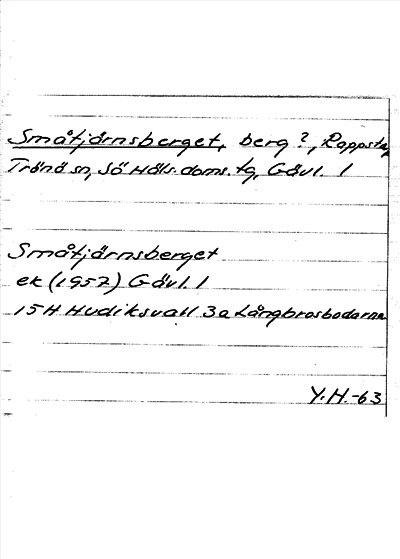 Småtjärnsberget, berg?, Rappsta,
Trönö sn, Sö Häls. doms. tg, Gävl. l
Småtjärnsberget
ek (1952) Gävl. l
15H Hudiksvall 3a Långbrosbodarna
Y.H.-63